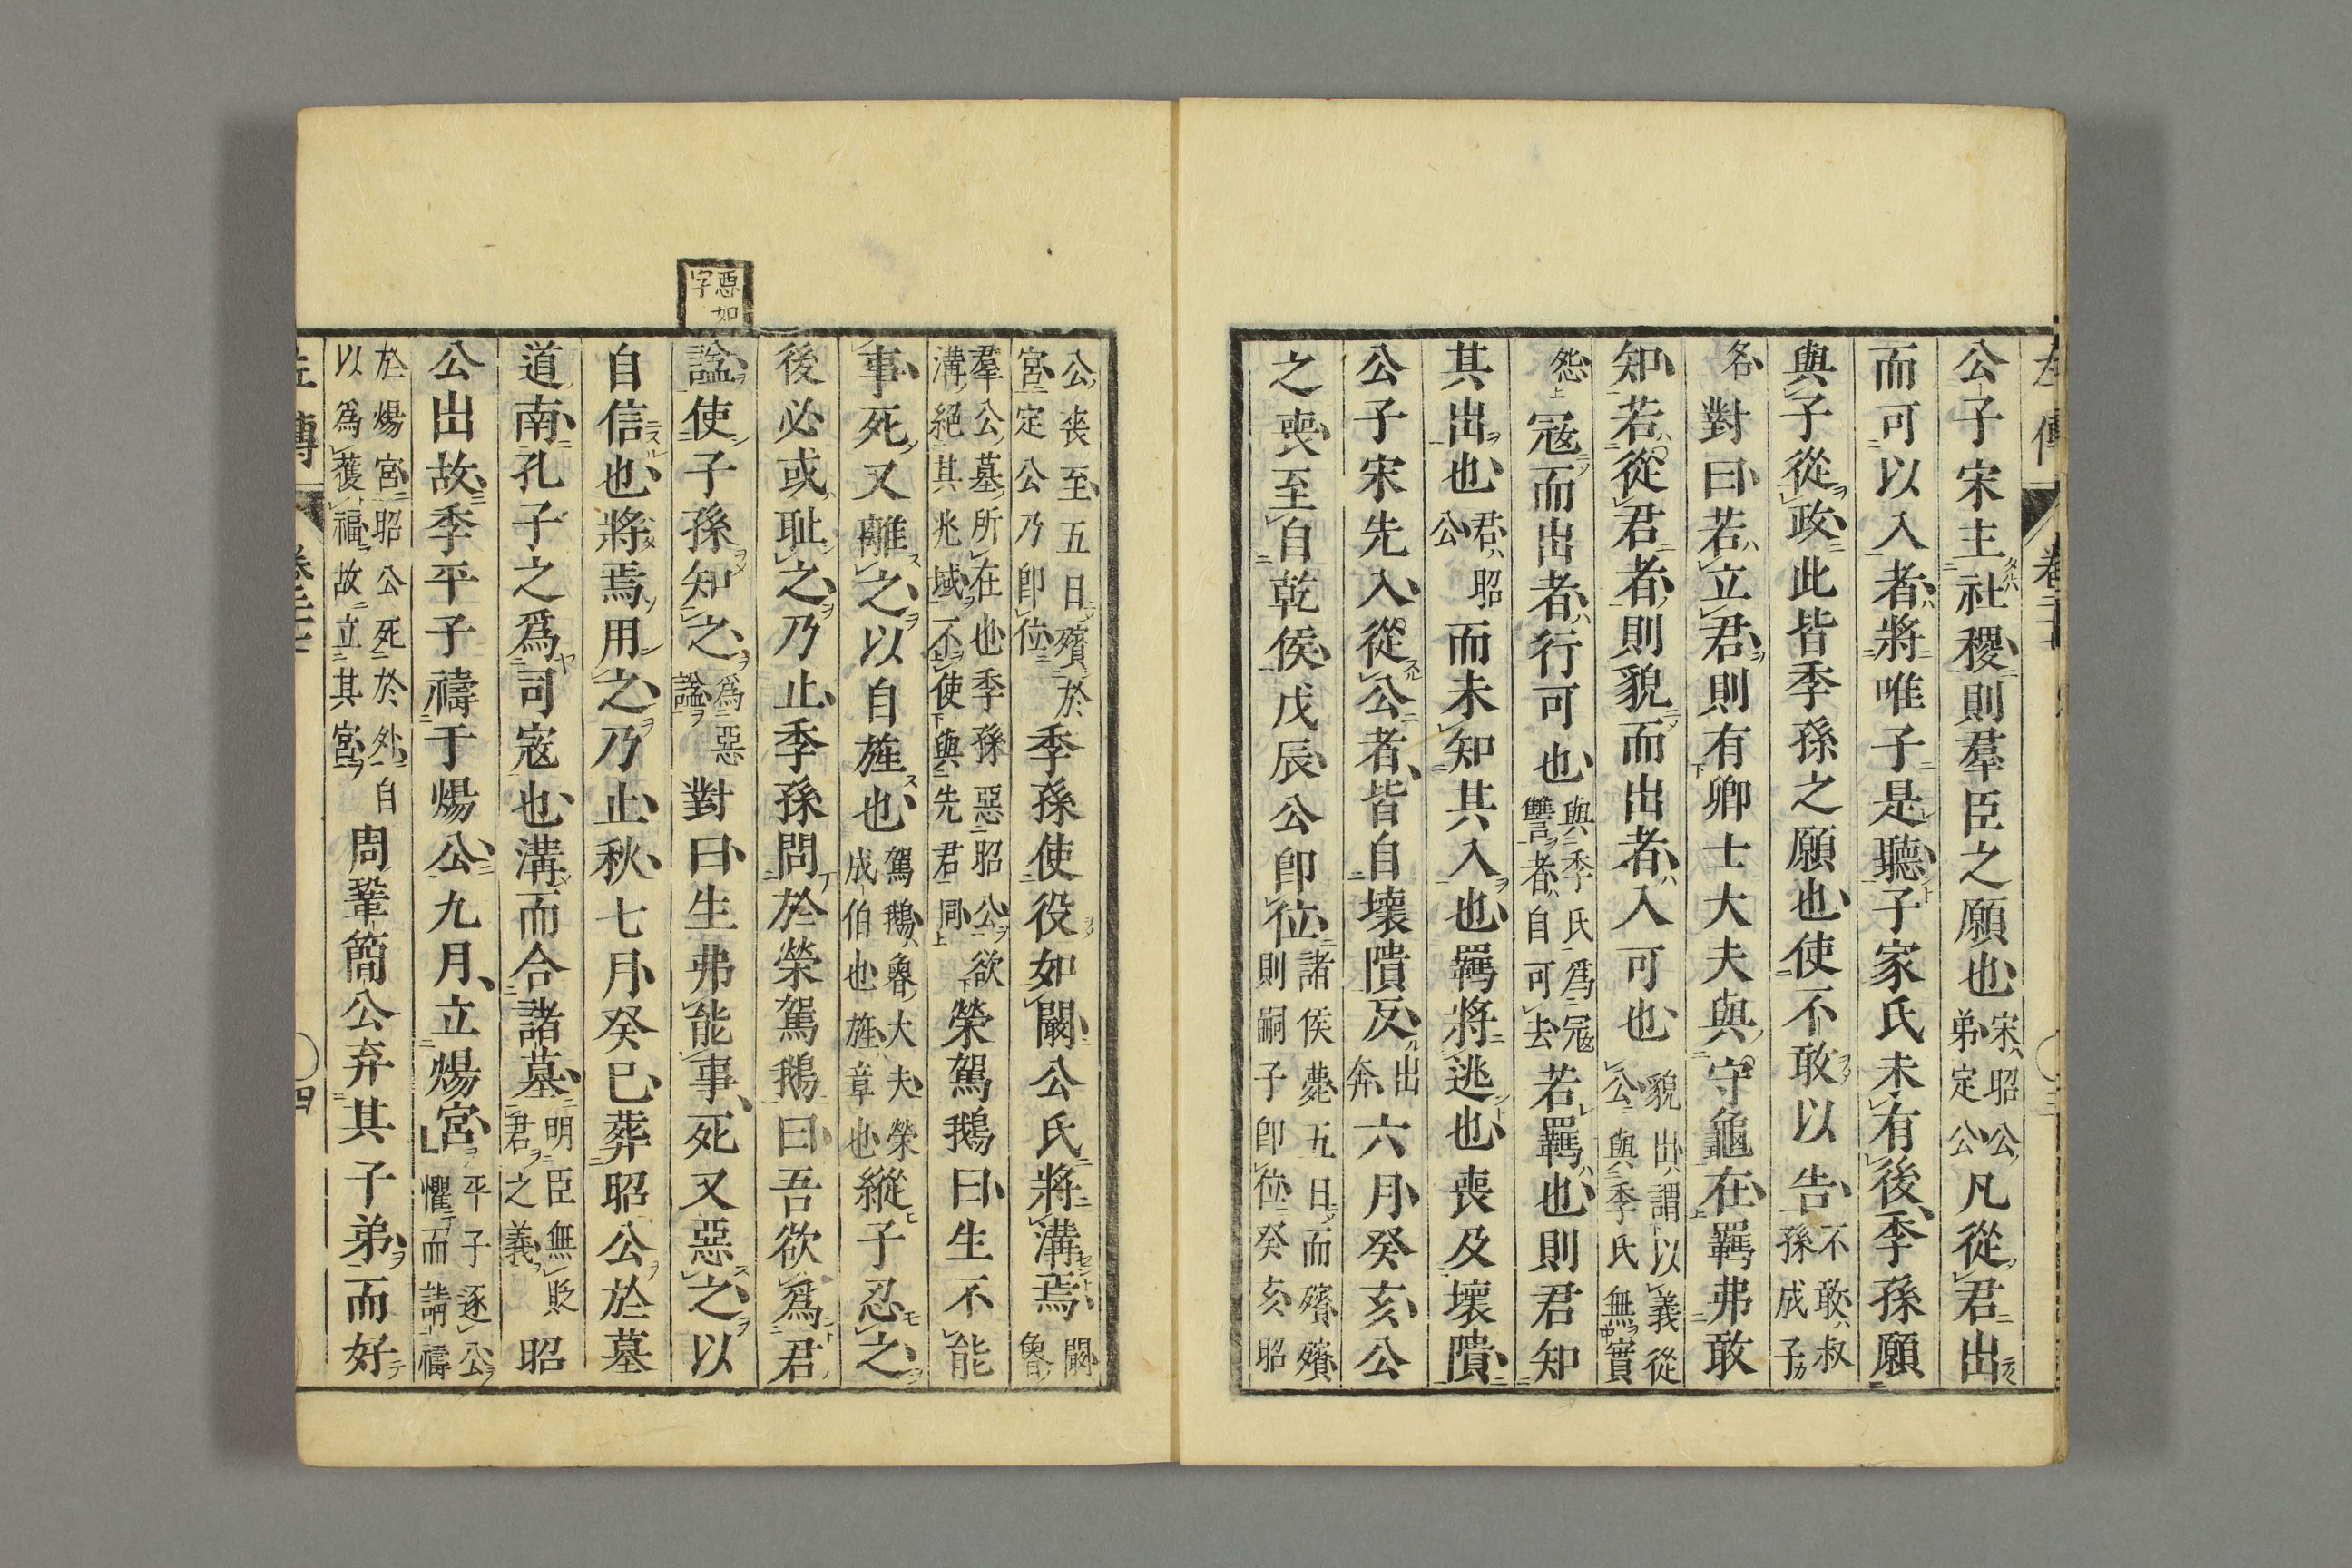 左傳 卷二十七 三
公子宋主社稷則羣臣之願也宋昭公弟定公凡從君出
而可以入者將唯子是聽子家氏未有後季孫願
與子從政此皆季孫之願也使不敢以告不敢叔孫成子
名對曰若立君則有卿士大夫與守龜在羈弗敢
知若從君者則貌而出者入可也貌出謂以義從公與季氏無實
怨寇而出者行可也與季氏爲寇讐者自可去若羈也則君知
其出也君昭公而未知其入也羈將逃也喪及壞隤
公子宋先入從公者皆自壞隤反出奔六月癸亥公
之喪至自乾侯戊辰公卽位諸侯薨五日而殯殯則嗣子卽位癸亥昭
公喪至五日殯於宮定公乃卽位季孫使役如闞公氏將溝焉闞魯
羣公墓所在也季孫惡昭公欲溝絕其兆域不使與先君同榮駕鵝曰生不能
事死又離之以自旌也駕鵝魯大夫榮成伯也旌章也縱子忍之
後必或耻之乃止季孫問於榮駕鵝曰吾欲爲君
惡如字
諡使子孫知之爲惡諡對曰生弗能事死又惡之以
自信也將焉用之乃止秋七月癸巳葬昭公於墓
道南孔子之爲司寇也溝而合諸墓明臣無貶君之義昭
公出故季平子禱于煬公九月立煬宮平子逐公懼而請禱
於煬宮昭公死於外自以爲獲福故立其宮周鞏簡公弃其子弟而好
左傳 卷二十七 四